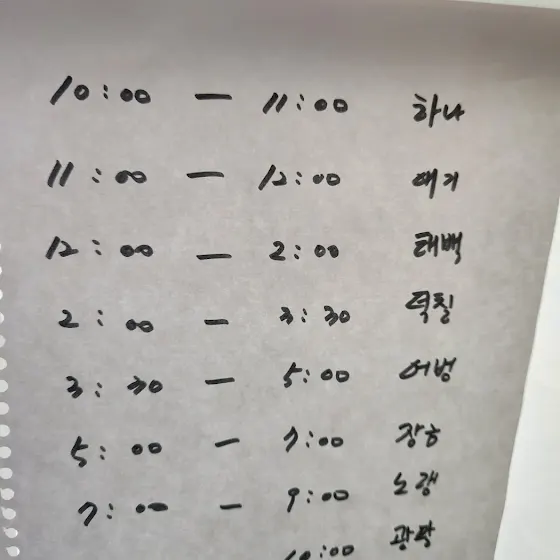 10:00 — 11:00 하나
11:00 — 12:00 애기
12:00 — 2:00 태백
2:00 — 3:30 덕칠
3:30 — 5:00 어벙
5:00 — 7:00 장호
7:00 — 9:00 노랭
10:00 관팍